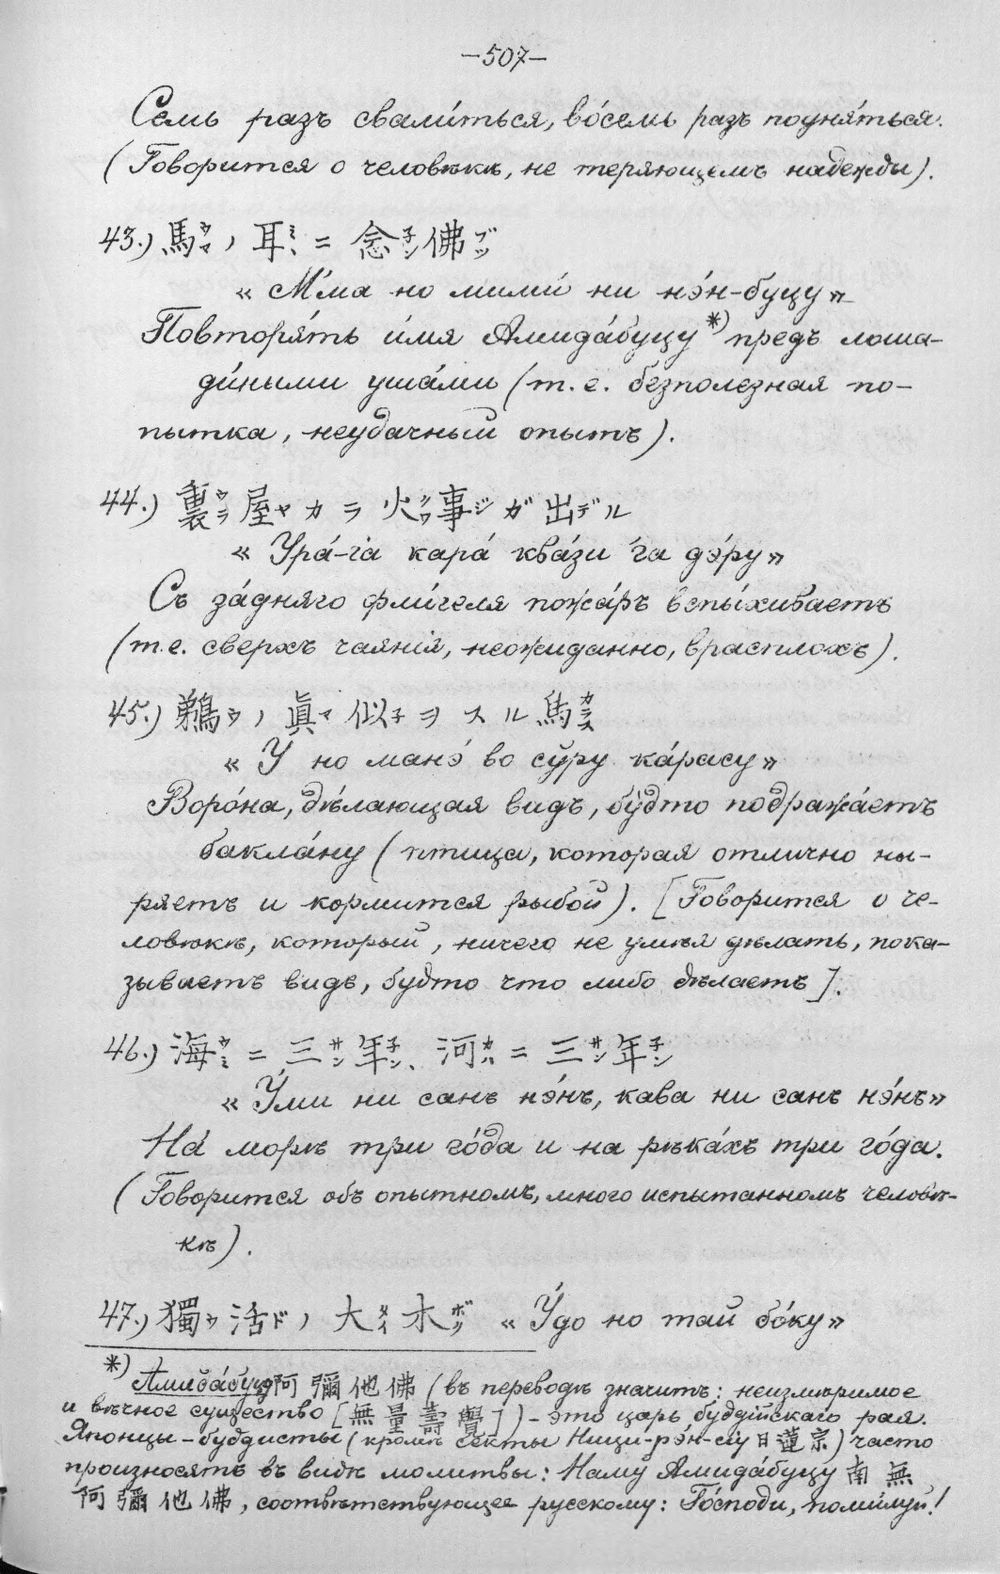 —507—
Семь разъ свали́ться, во́семь разъ подня́ться.
(Говорится о человѣкѣ, не теряющемъ надежды).
43.) 馬ウマノ 耳ミヽ ニ 念子ン佛ブツ
« М́ма но мими́ ни нэ́н-буцу»
Повторя́ть и́мя Амида́буцу*) предъ лоша-
ди́ными уша́ми (т.е. безполезная по-
пытка, неудачный опытъ).
44.) 裏ウラ屋ヤカラ 火クワ事ジガ出デル
« Ура́-ıа кара́ ква́зи ́га дэ́ру»
Съ за́дняго фли́геля пожа́ръ вспы́хиваетъ
(т.е. сверхъ чаянія, неожиданно, врасплохъ).
45.) 鵜ウノ 眞マ似子ヲ スル 烏カラス
« У́ но манэ́ во сўру ка́расу»
Воро́на, дѣлающая видъ, бу́дто подража́етъ
бакла́ну (птица, которая отлично ны-
ряетъ и кормится рыбой). [Говорится о че-
ловѣкѣ, который, ничего не умѣя дѣлать, пока-
зываетъ видъ, будто что либо дѣлаетъ].
46.) 海ウミニ 三サン年子ン、河カハニ 三サン年子ン
« У́ми ни санъ нэ́нъ, кава ни санъ нэ́нъ»
На́ морѣ три го́да и на рѣка́хъ три го́да.
(Говорится объ опытномъ, много испытанномъ человѣ-
кѣ).
47.) 獨ウ活ドノ 大タイ木ボク « У́до но тай бо́ку»
*) Амида́буцу 阿彌他佛 (въ переводѣ значитъ: неизмѣримое
и вѣчное существо [無量壽覺]) – это царь буддійскаго рая.
Японцы-буддисты (кромѣ секты Ници-рэн-сіу 日蓮宗) часто
произносятъ въ видѣ молитвы: Наму́ Амида́буцу 南無
阿彌他佛, соотвѣтствующее русскому: Го́споди, поми́луй!